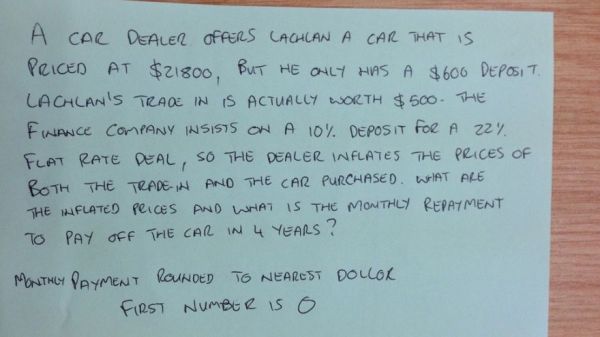 A CAR DEALER OFFERS LACHLAN A CAR THAT IS
PRICED AT $21800, BUT HE ONLY HAS A $600 DEPOSIT.
LACHLAN'S TRADE IN IS ACTUALLY WORTH $500. THE
FINANCE COMPANY INSISTS ON A 10% DEPOSIT FOR A 22%
FLAT RATE DEAL, SO THE DEALER INFLATES THE PRICES OF
BOTH THE TRADE-IN AND THE CAR PURCHASED. WHAT ARE
THE INFLATED PRICES AND WHAT IS THE MONTHLY REPAYMENT
TO PAY OFF THE CAR IN 4 YEARS?
MONTHLY PAYMENT ROUNDED TO NEAREST DOLLOR
FIRST NUMBER IS 0